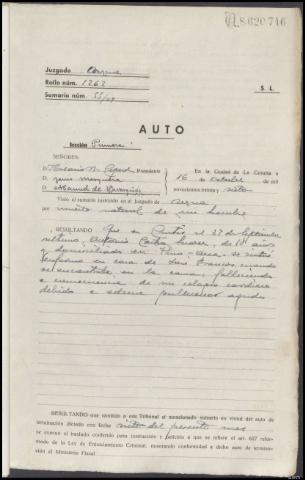 A.8620746
Juzgado Arzua
Rollo núm. 1262
Sumario núm. 55/
S. L.
AUTO
Sección Primera
SEÑORES:
D. Presidente
D. Jose
D. Manuel de
En la Ciudad de La Coruña a
16 de Octubre de mil
novecientos treinta y siete
Visto el sumario instruido en el Juzgado de Arzua
por muerte natural de un hombre
RESULTANDO Que en el 27 de Septiembre
ultimo, Antonio Castro Suarez, de años
y domiciliado en Pino - Arca se sintió
enfermo en casa de Luis Franco, cuando
se encontraba en la cama, falleciendo
a consecuencia de un colapso cardiaco
debido a edema pulmonar agudo.
RESULTANDO que remitido a este Tribunal el mencionado sumario en virtud del auto de
terminación dictado con fecha siete del presente mes
se evacuó el traslado conferido para instrucción y petición a que se refiere el art. 627 refor-
mado de la Ley de Enjuiciamiento Criminal, mostrando conformidad a dicho auto de terminación
el Ministerio Fiscal